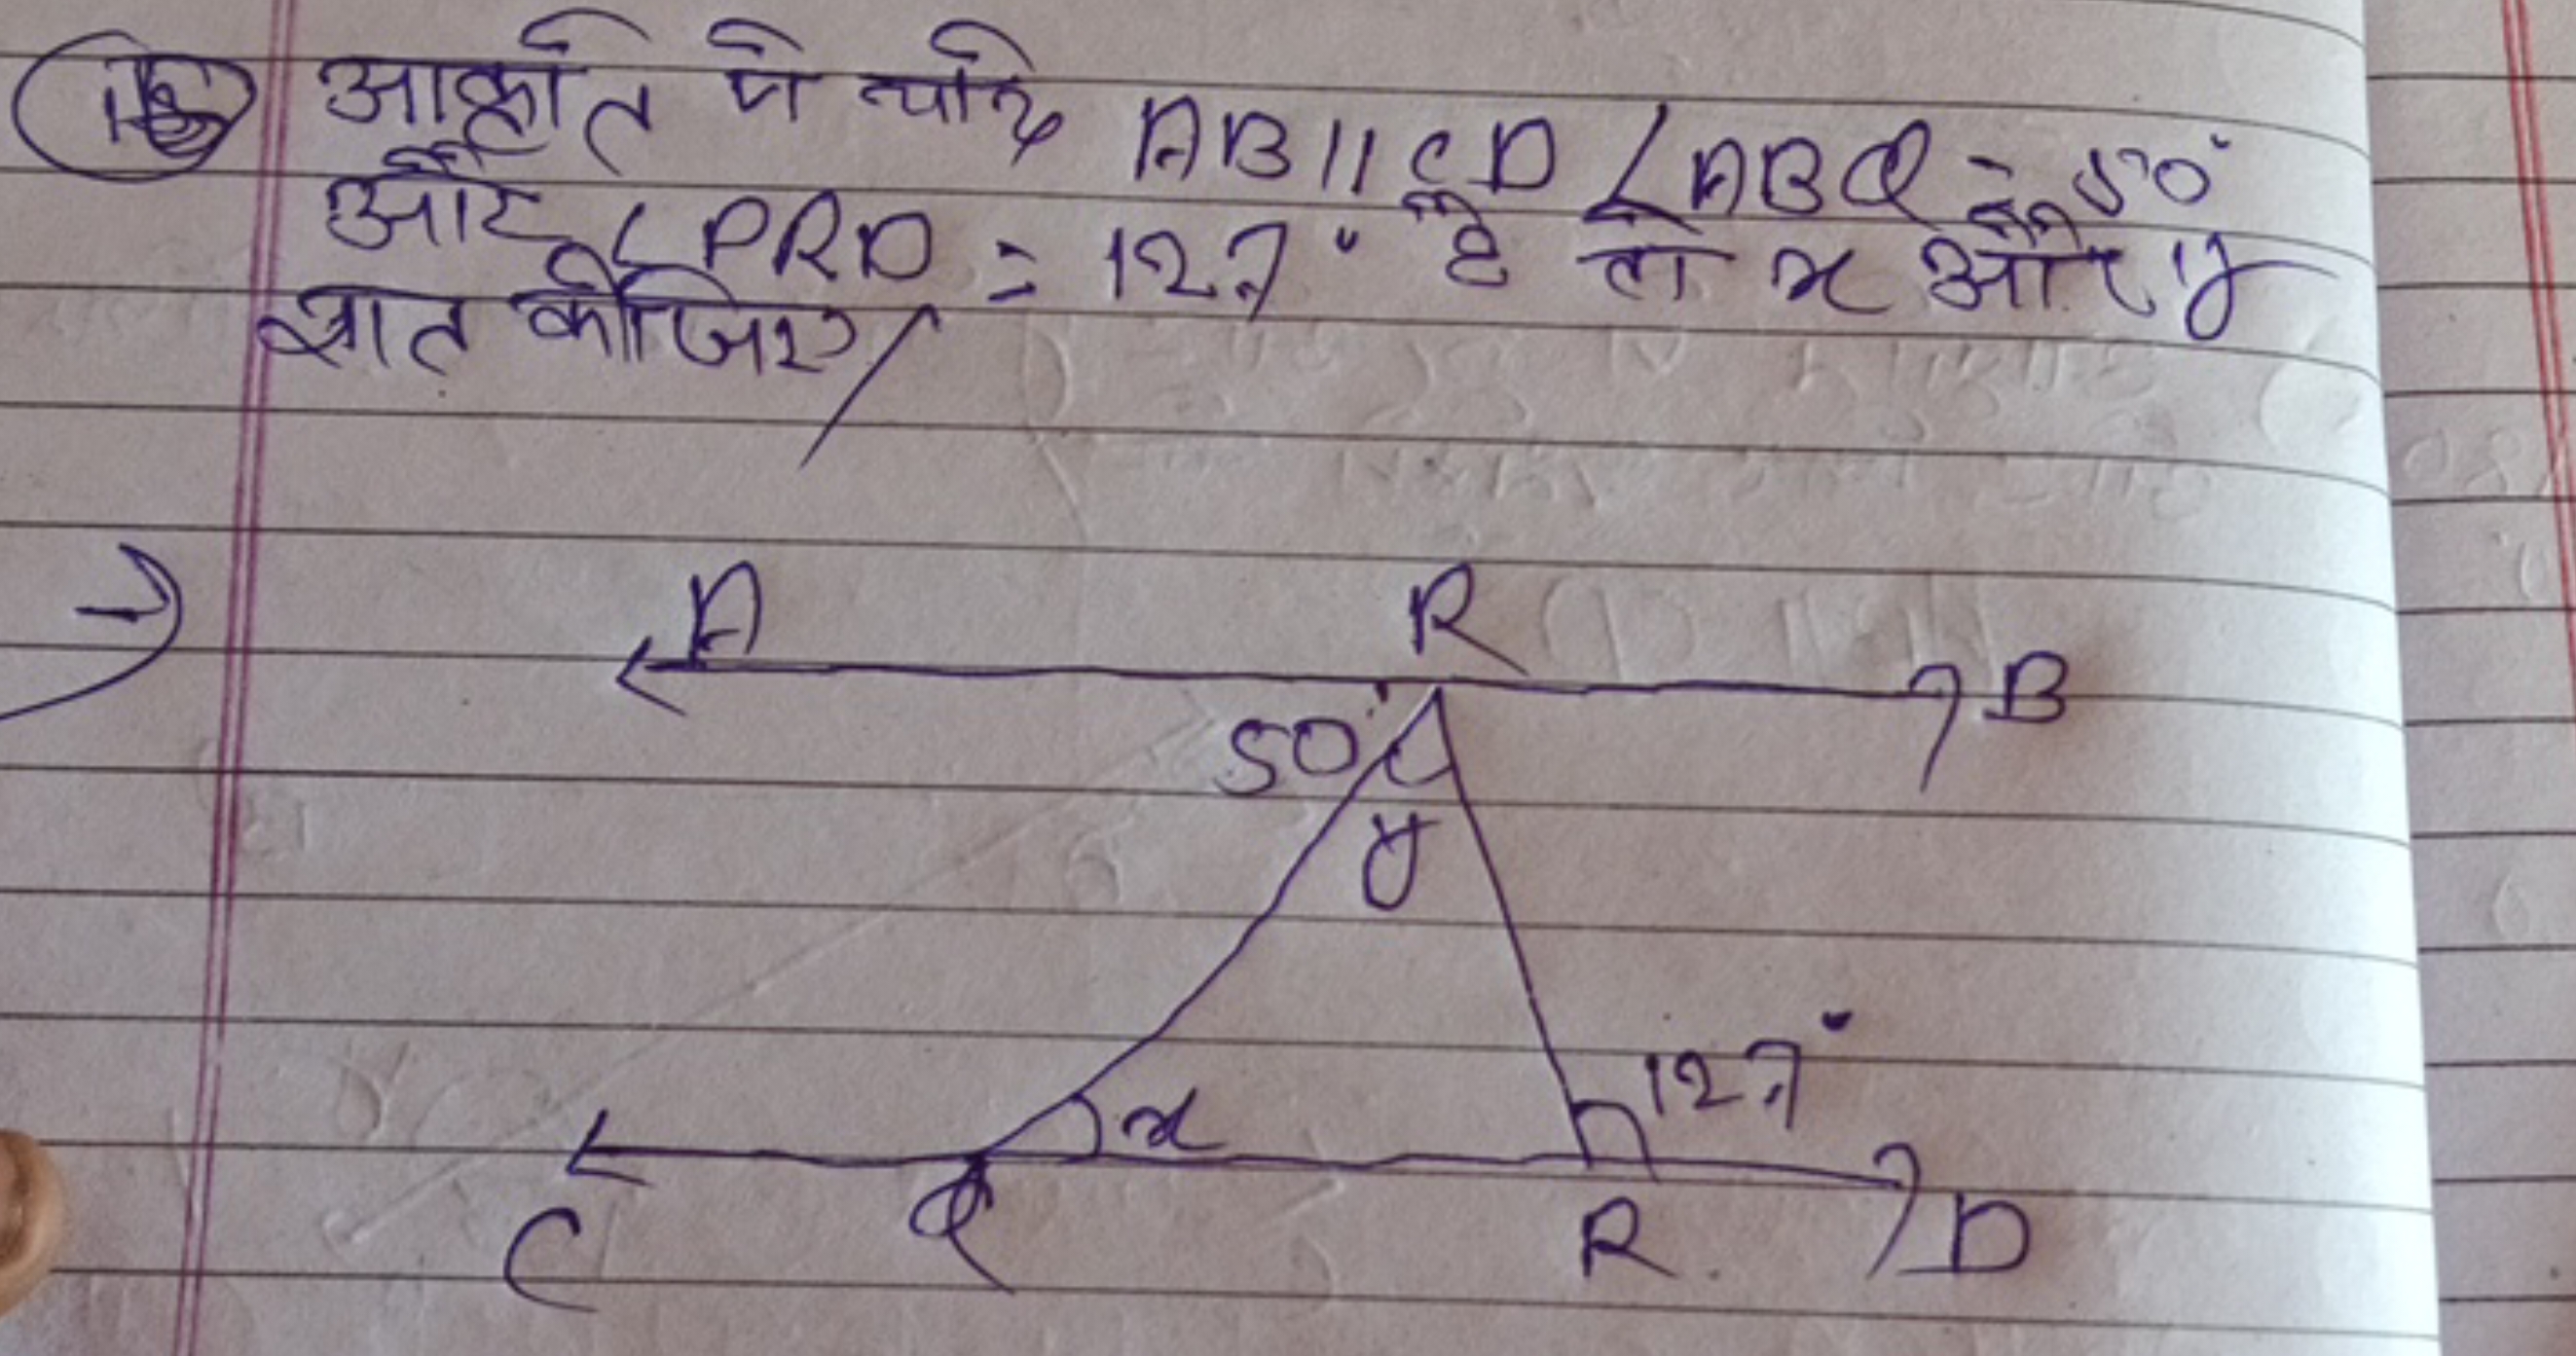 आकृति में यदि AB||CD ∠ABQ = 50°
और ∠PRD = 127° है तो x और y
ज्ञात कीजिए/
A R B
50°
y
127°
x
C Q R D